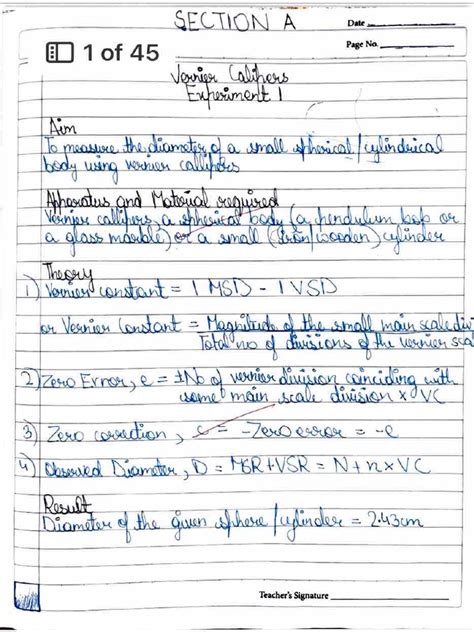 SECTION A
Date
1 of 45
Page No.
Vernier Calipers
Experiment 1
Aim
To measure the diameter of a small spherical/cylindrical
body using vernier callipers
Apparatus and Material required
Vernier callipers, a spherical body (a pendulum bob or
a glass marble) or a small (iron/wooden) cylinder
Theory
1) Vernier constant = 1 MSD - 1 VSD
or Vernier Constant = Magnitude of the small main scale divi
Total no of divisions of the vernier scal
2) Zero Error, e = ±No of vernier division coinciding with
some main scale division x VC
3) Zero correction, c = -Zero error = -e
4) Observed Diameter, D = MSR+VSR = N + n x VC
Result
Diameter of the given sphere/cylinder = 2.43cm
Teacher's Signature